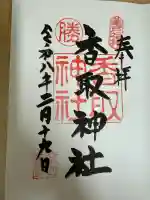 奉拝
香取神社
令和八年二月十九日
勝
香取
神社